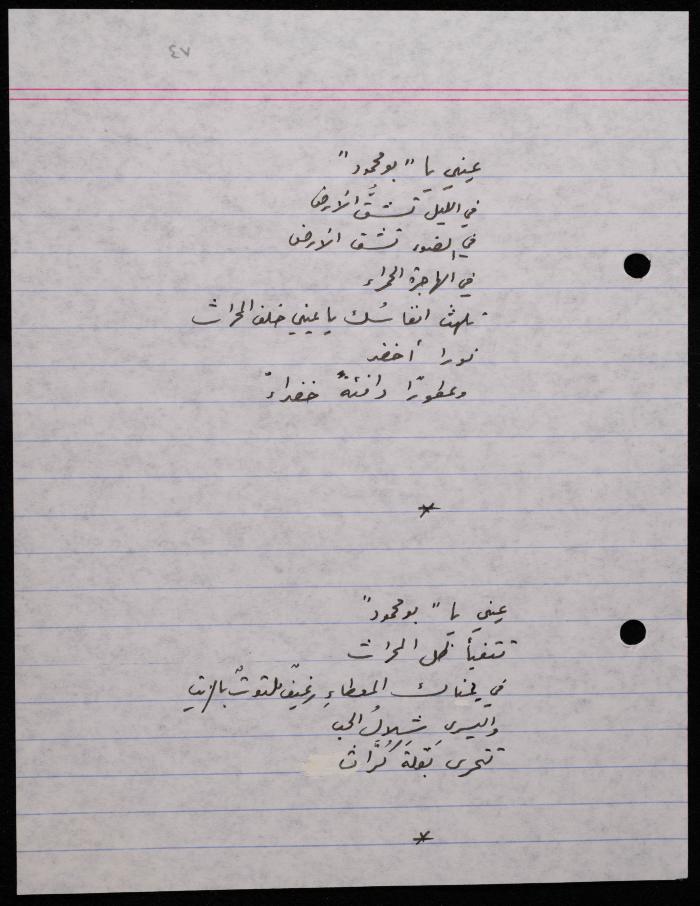 ٤٧
عيني يا "بو محمود"
في الليل تشقُّ الأرض
في الضوء تشق الأرض
في الهاجرة الحمراء
تلهث انفاسُك يا عيني خلف المحراث
نورا أخضر
وعطورًا دافئةً خضراءْ
*
عيني يا "بو محمود"
تتفيأ ظل المحراث
في يمناك المعطاءِ رغيفٌ ملتوتٌ بالزيتِ
واليسرى شلالُ الحب
تتحرى بَقلةَ كُرَّاث
*